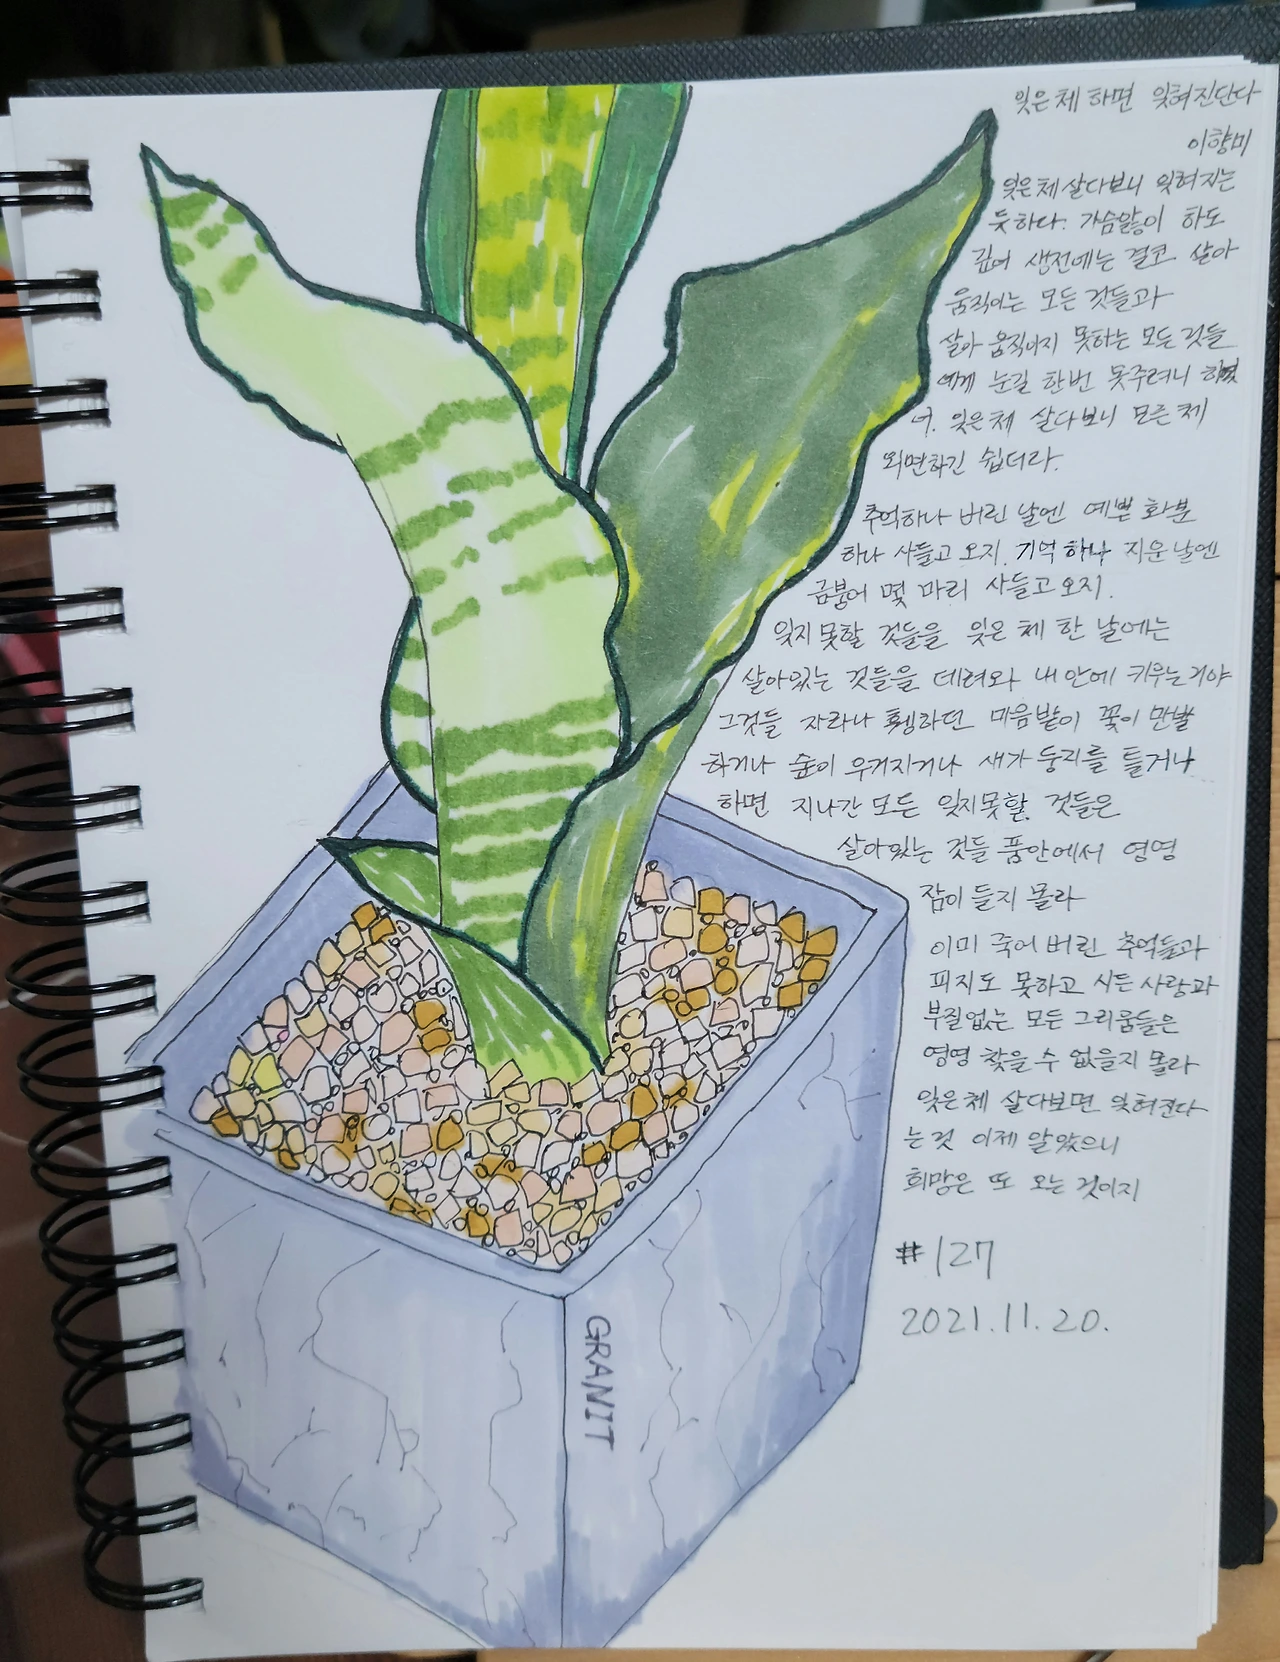 잊은 체 하면 잊혀진단다
이향미
잊은체 살다보니 잊혀지는
듯하다. 가슴앓이 하도
깊어 생전에는 결코 살아
움직이는 모든 것들과
살아 움직이지 못하는 모든 것들
에게 눈길 한번 못주려니 하였
너. 잊은체 살다보니 모른체
외면하긴 쉽더라.
추억하나 버린 날엔 예쁜 화분
하나 사들고 오지. 기억 하나 지운 날엔
금붕어 몇 마리 사들고 오지.
잊지 못할 것들을 잊은 체 한 날에는
살아있는 것들을 데려와 내 안에 키우는거야
그것들 자라나 휑하던 마음밭이 꽃이 만발
하거나 숲이 우거지거나 새가 둥지를 틀거나
하면 지나간 모든 잊지못할 것들은
살아있는 것들 품안에서 영영
잠이 들지 몰라
이미 죽어 버린 추억들과
피지도 못하고 시든 사랑과
부질없는 모든 그리움들은
영영 찾을 수 없을지 몰라
잊은체 살다보면 잊혀진다
는것 이제 알았으니
희망은 또 오는 것이지
#127
2021.11.20.
GRANIT